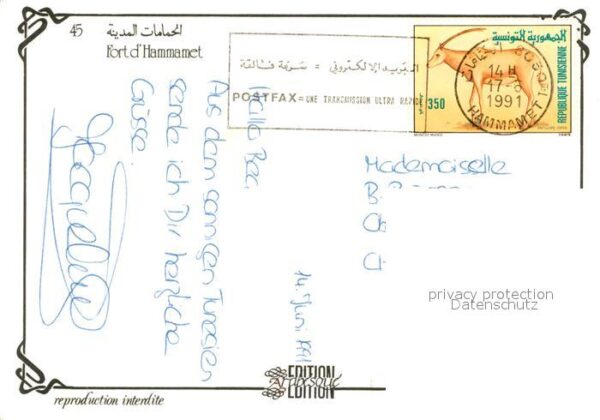 45
الحمامات المدينة
Fort d'Hammamet
البريد الإلكتروني = سرعة فائقة
POSTFAX = UNE TRANSMISSION ULTRA RAPIDE
الجمهورية التونسية
REPUBLIQUE TUNISIENNE
350
14 H
17-6
1991
HAMMAMET
Hallo Bea
Aus dem sonnigen Tunesien
sende ich Dir herzliche
Grüsse.
Jacqueline
14. Juni 1991
Mademoiselle
B.
privacy protection
Datenschutz
EDITION
Arabesque
EDITION
reproduction interdite